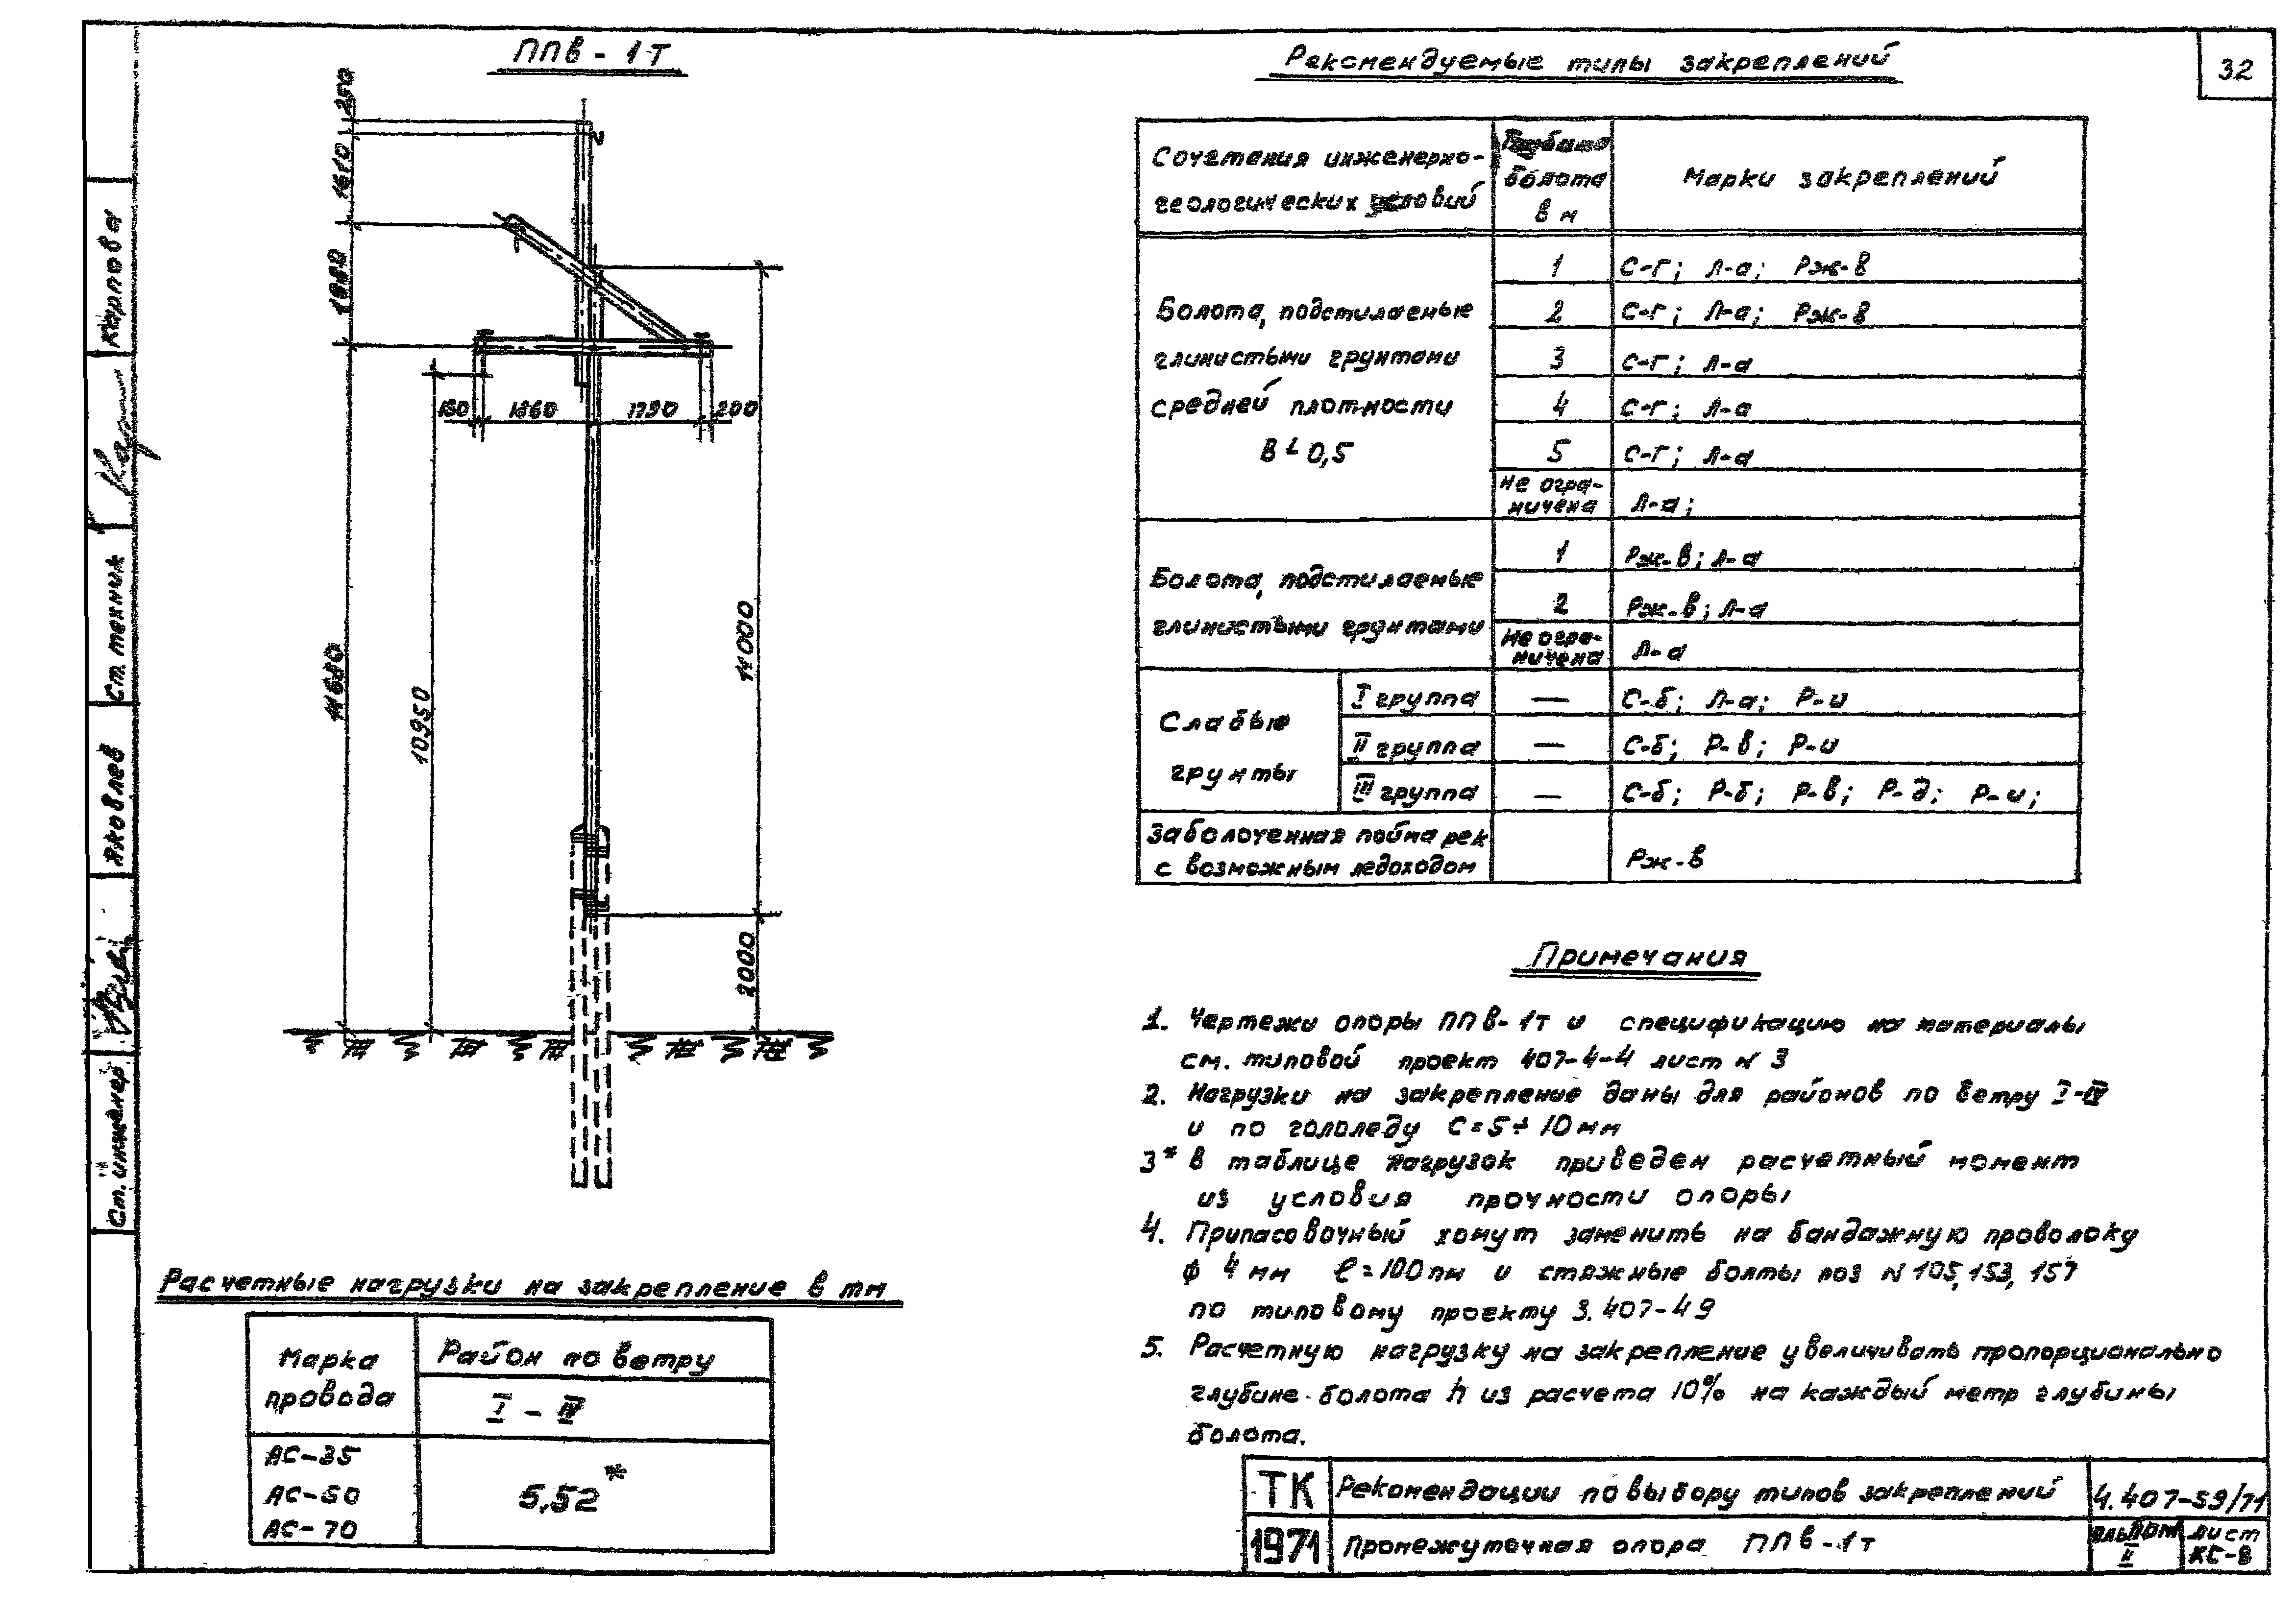 ППв - 1Т
Рекомендуемые типы закреплений
32
250
1610
1880
11680
10950
11000
2000
150
1860
1790
200
Сочетания инженерно-
геологических условий
Глубина
болота
в м
Марки закреплений
Болота, подстилаемые
глинистыми грунтами
средней плотности
В ∠ 0,5
1
С-г; Л-а; Рж-в
2
С-г; Л-а; Рж-в
3
С-г; Л-а
4
С-г; Л-а
5
С-г; Л-а
не огра-
ничена
Л-а;
Болота, подстилаемые
глинистыми грунтами
1
Рж-в; Л-а
2
Рж-в; Л-а
Не огра-
ничена
Л-а
Слабые
грунты
I группа
—
С-б; Л-а; Р-и
II группа
—
С-б; Р-в; Р-и
III группа
—
С-б; Р-б; Р-в; Р-д; Р-и;
Заболоченная пойма рек
с возможным ледоходом
Рж-в
Примечания
1. Чертежи опоры ППв-1т и спецификацию на материалы
см. типовой проект 407-4-4 лист N 3
2. Нагрузки на закрепление даны для районов по ветру I-IV
и по гололеду С=5÷10мм
3* В таблице нагрузок приведен расчетный момент
из условия прочности опоры
4. Припасовочный хомут заменить на бандажную проволоку
ф 4 мм ℓ=100пм и стяжные болты поз N 105, 153, 157
по типовому проекту 3.407-49
5. Расчетную нагрузку на закрепление увеличивать пропорционально
глубине болота h из расчета 10% на каждый метр глубины
болота.
Расчетные нагрузки на закрепление в тм
Марка
провода
Район по ветру
I - IV
АС-35
АС-50
АС-70
5,52*
ТК
1971
Рекомендации по выбору типов закреплений
Промежуточная опора ППв-1т
4.407-59/71
Альбом
II
лист
КС-8
Карпова
Ст. техник
Яковлев
Ст. инженер